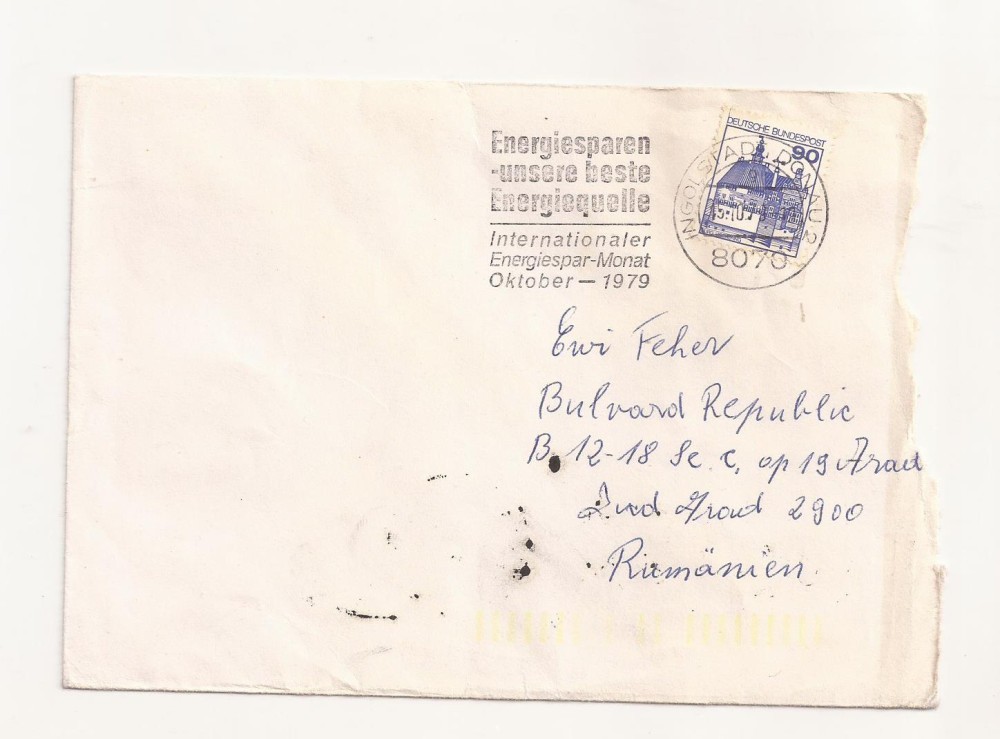 Energiesparen
-unsere beste
Energiequelle
Internationaler
Energiespar-Monat
Oktober — 1979
DEUTSCHE BUNDESPOST
90
INGOLSTADT, DONAU 2
8070
Ewi Feher
Bulvard Republic
B 12-18 Sc. C, ap 19 Arad
Jud Arad 2900
Rumänien